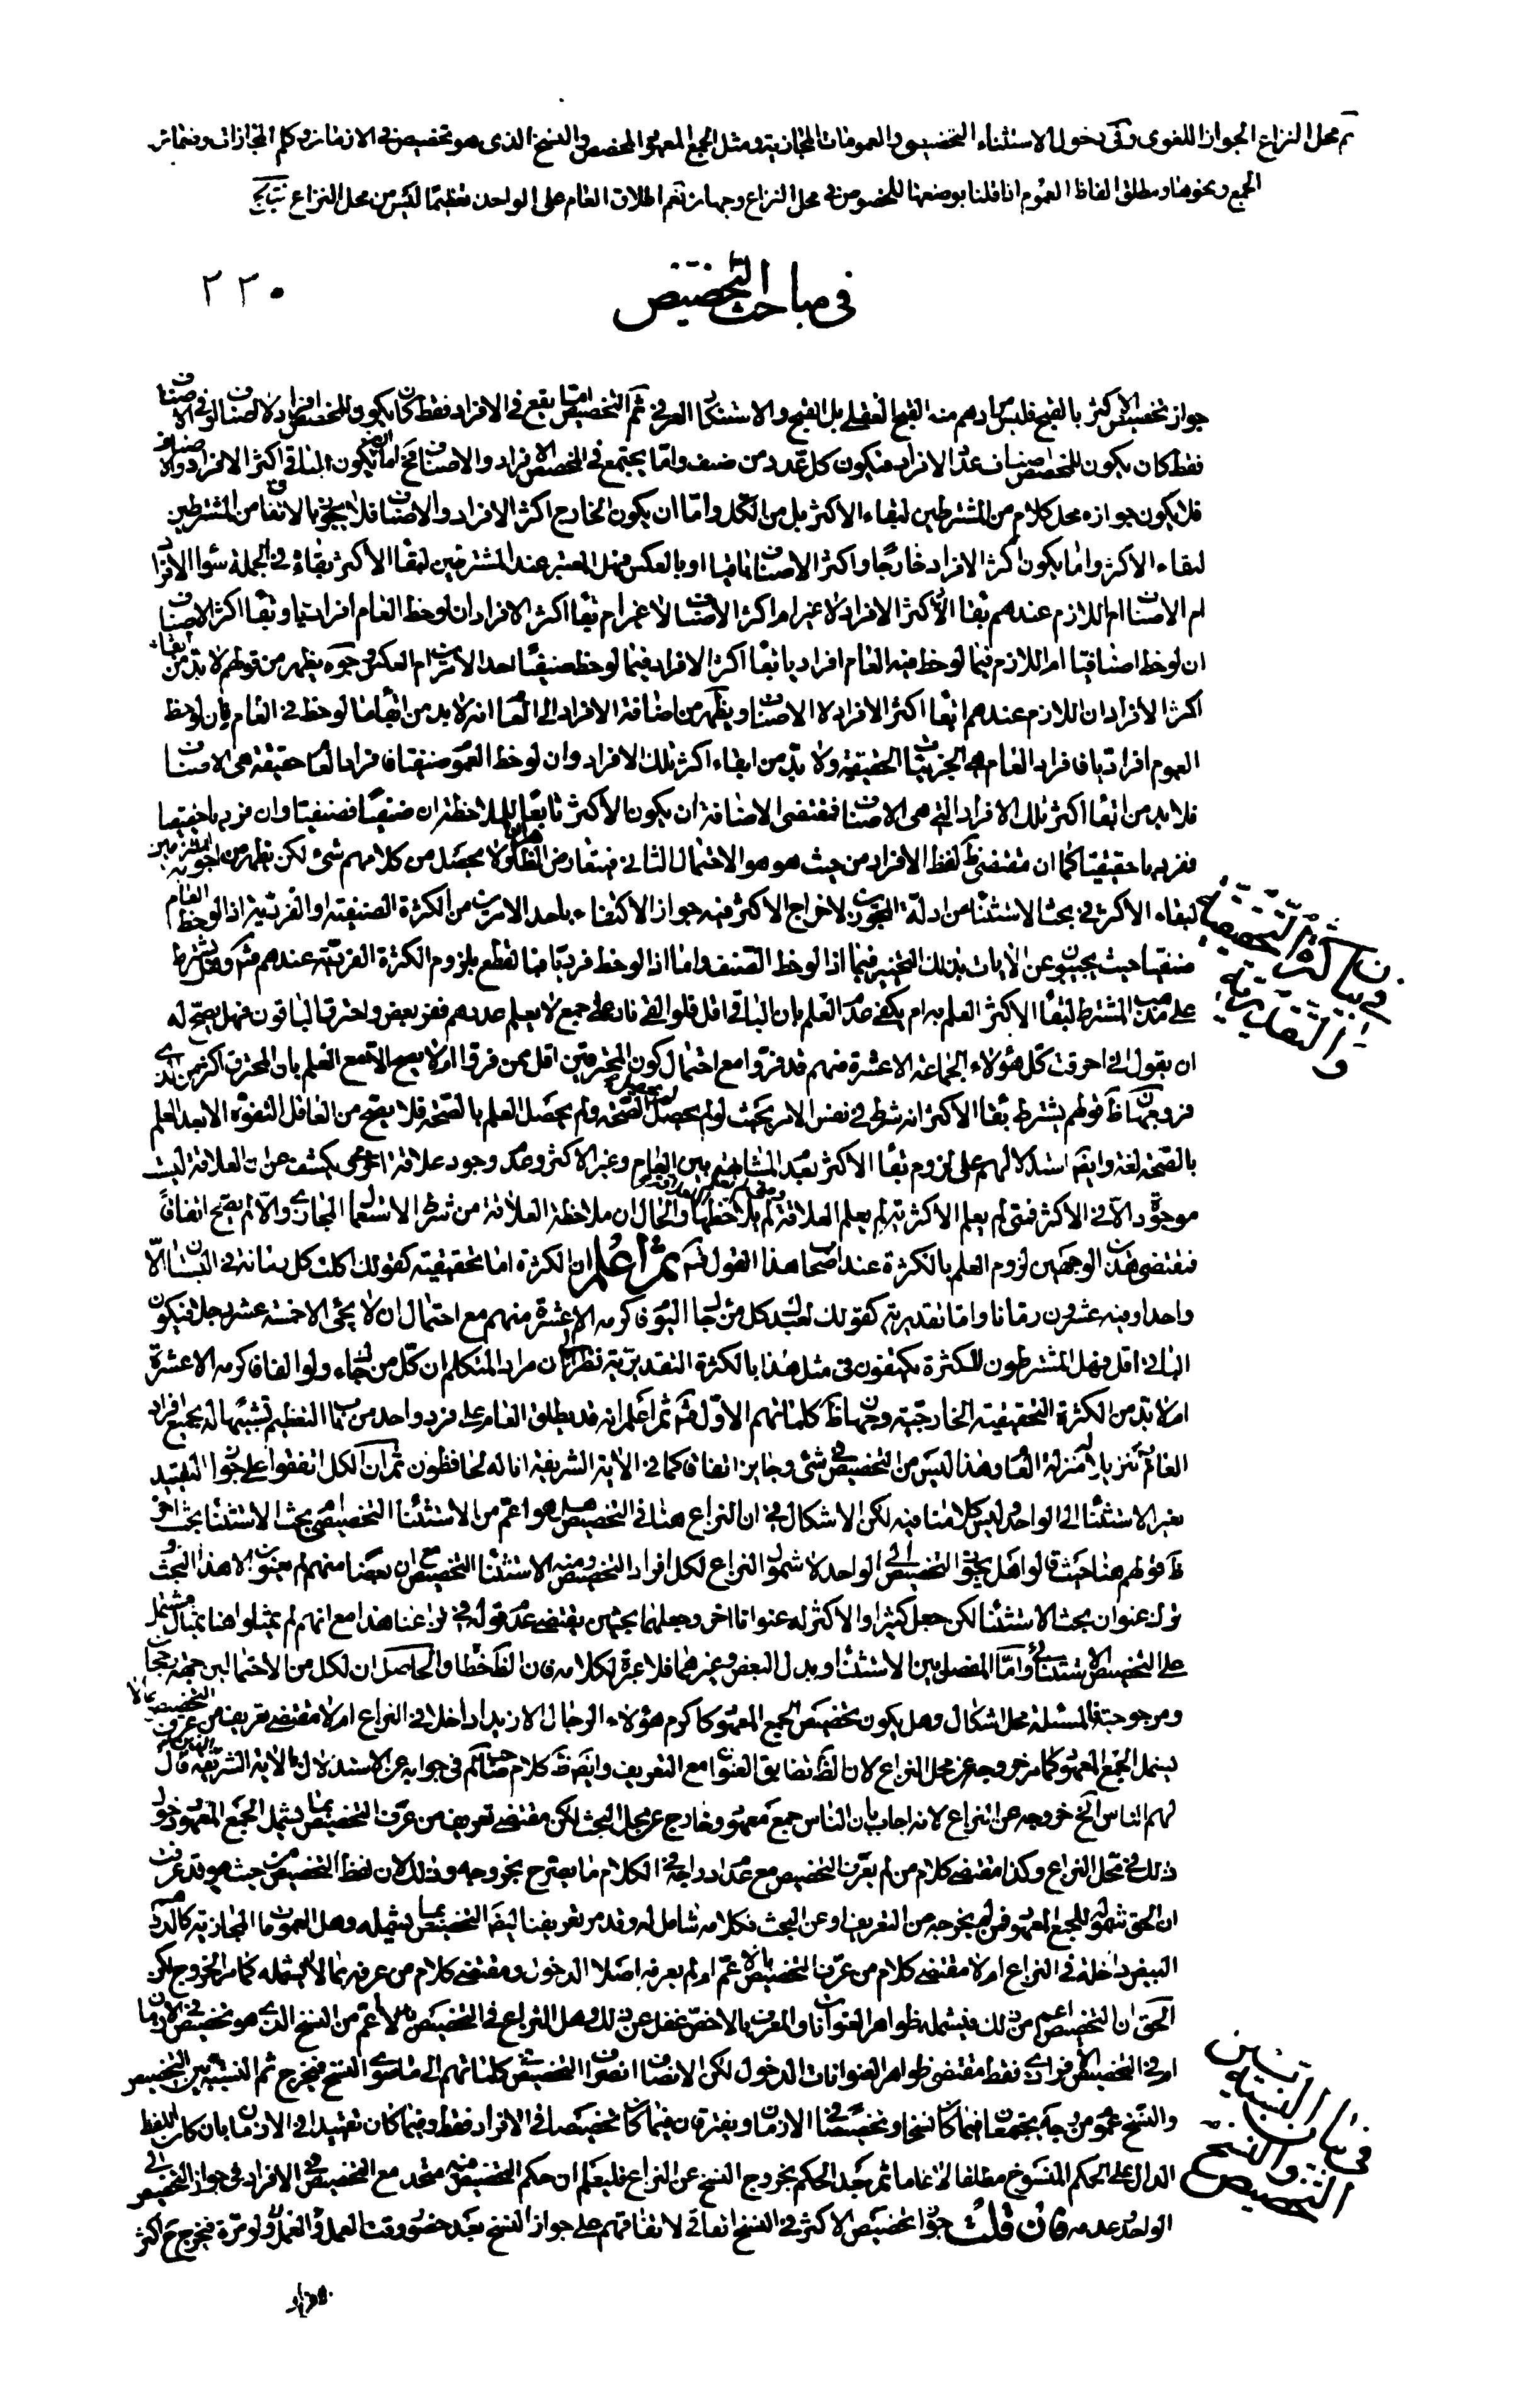 ثم محل النزاع الجواز اللغوى وفى دخول الاستثناء التخصيص والعمومات المجازية ومثل الجمع المعهود المخصص والنسخ الذى هو تخصيص فى الازمان وكلم المجازات وضمائر
الجمع ونحوها ومطلق الفاظ العموم اذا قلنا بوضعها للخصوص فى محل النزاع وجهان نعم اطلاق العام على الواحد تعظيما ليس من محل النزاع
٢٣٠
فى مباحث التخصيص
جواز تخصيص الاكثر بالقبح فليس مرادهم منه القبح العقلى بل القبح والاستنكار العرفى ثم التخصيص اما يقع فى الافراد فقط كان يكون المخصص افراد لا اصناف او فى الاصناف
فقط كان يكون المخصص اصناف عدا الافراد فيكون كل عدد من صنف واما يجتمع فى المخصص الافراد والاصناف فح اما ان يكون الباقى اكثر الافراد والاصناف
فلا يكون جوازه محل كلام من المشترطين لبقاء الاكثر بل من الكل واما ان يكون الخارج اكثر الافراد والاصناف فلا يجوز بالاتفاق من المشترطين
لبقاء الاكثر واما يكون اكثر الافراد خارجا واكثر الاصناف باقيا او بالعكس فهل المعتبر عند المشترطين لبقاء الاكثر بقاؤه فى الجملة سواء الافراد
ام الاصناف ام اللازم عندهم بقاء اكثر الافراد لا غير ام اكثر الاصناف لا غير ام بقاء اكثر الافراد ان لوحظ العام افراديا وبقاء اكثر الاصناف
ان لوحظ اصنافيا ام اللازم فيما لوحظ فيه العام افراديا بقاء اكثر الافراد وفيما لوحظ صنفيا احد الامرين ام العكس وجوه يظهر من قولهم لا بد من بقاء
اكثر الافراد ان اللازم عندهم ابقاء اكثر الافراد لا الاصناف ويظهر من اضافة الافراد الى العام انه لا بد من ابقاء ما لوحظ فى العام فان لوحظ
العموم افراديا فافراد العام هى الجزئيات الحقيقية ولا بد من ابقاء اكثر تلك الافراد وان لوحظ العموم صنفيا فافراد العام حقيقة هى الاصناف
فلا بد من ابقاء اكثر تلك الافراد التى هى الاصناف فمقتضى الاضافة ان يكون الاكثر تابعا للملاحظة ان صنفيا فصنفيا وان فرديا حقيقيا
ففرديا حقيقيا كما ان مقتضى لفظ الافراد من حيث هو هو الاحتمال الثانى فيتعارض الظاهران ولا يحصل من كلامهم شئ لكن يظهر من اجوبة الملتزمين
لبقاء الاكثر فى بحث الاستثناء من ادلة المجوزين لاخراج الاكثر فيه جواز الاكتفاء باحد الامرين من الكثرة الصنفية او الفردية اذا لوحظ العام
صنفيا حيث يجيبون عن الايات بذلك التخيير فيما اذا لوحظ الصنف واما اذا لوحظ فرديا فالقطع بلزوم الكثرة الفردية عندهم فت وهل يشترط
على مذهب المشترط لبقاء الاكثر العلم به ام يكفى عدم العلم بان الباقى اقل فلو القى نار على جمع لا يعلم عددهم ففر بعض واحترق الباقون فهل يصح له
ان يقول انى احرقت كل هؤلاء الجماعة الا عشرة منهم قد فروا مع احتمال كون المحترقين اقل ممن فروا ام لا يصح الا مع العلم بان المحترق اكثر من الذى
فر وجهان ظاهر قولهم يشترط بقاء الاكثر انه شرط فى نفس الامر بحيث لو لم يحصل لم يحصل الصحة ولم يحصل العلم بالصحة فلا يصح من العاقل التفوه الا بعد العلم
بالصحة لغة وايضا استدلالهم على لزوم بقاء الاكثر بعدم المشابهة بين العام وغير الاكثر وعدم وجود علاقة اخرى يكشف عن ان العلاقة ليست
موجودة الا فى الاكثر فمتى لم يعلم الاكثرية لم يعلم العلاقة ومتى لم يعلم العلاقة لم يلاحظها والحال ان ملاحظة العلاقة من شرط الاستعمال المجازى والا لم يصح اتفاقا
فمقتضى هذين الوجهين لزوم العلم بالكثرة عند اصحاب هذا القول فت ثم اعلم ان الكثرة اما تحقيقية كقولك اكلت كل رمانة فى البستان الا
واحدا وفيه عشرون رمانا واما تقديرية كقولك لعبدك كل من جاء اليوم فاكرمه الا عشرة منهم مع احتمال ان لا يجئ الا خمسة عشر رجلا فيكون
الباقى اقل فهل المشترطون للكثرة يكتفون فى مثل هذا بالكثرة التقديرية نظرا الى ان مراد المتكلم ان كل من جاء ولو الفا فاكرمه الا عشرة
ام لا بد من الكثرة التحقيقية الخارجية وجهان ظاهر كلماتهم الاول فت ثم اعلم انه قد يطلق العام على فرد واحد من باب التعظيم تشبيها له بجميع افراد
العام تنزيلا له منزلة العام وهذا ليس من التخصيص فى شئ وجايز اتفاقا كما فى الاية الشريفة انا له لحافظون ثم ان الكل اتفقوا على جواز التقييد
بغير الاستثناء الى الواحد وليس كلامنا فيه لكن الاشكال فى ان النزاع هنا فى التخصيص هل هو اعم من الاستثناء التخصيصى بحث الاستثناء بحث اخر
ظ قولهم هنا حيث قالوا هل يجوز التخصيص الى الواحد لا شمول النزاع لكل افراد التخصيص ومنه الاستثناء التخصيص مع ان بعضا منهم لم يعنون الا هذا البحث و
ترك عنوان بحث الاستثناء لكن جعل كثير او الاكثر له عنوانا اخر وجعلهما بحثين يقتضى عدم دخوله فى نزاعنا هذا مع انهم لم يمثلوا هنا بمثال مشتمل
على التخصيص الاستثنائى واما المفصل بين الاستثناء وبدل البعض وغيرهما فلا عبرة لكلامه فان الظ خطا والحاصل ان لكل من الاحتمالين جهة رجحان
ومرجوحية فالمسئلة محل اشكال وهل يكون تخصيص الجمع المعهود كاكرم هؤلاء الرجال الا زيدا داخلا فى النزاع ام لا مقتضى تعريف من عرف التخصيص بما لا
يشمل الجمع المعهود كما مر خروجه عن محل النزاع لان الظ تطابق العنوان مع التعريف وايضا ظ كلام صاحب لم فى جوابه عن الاستدلال بالاية الشريفة الذين قال
لهم الناس الخ خروجه عن النزاع لانه اجاب بان الناس جمع معهود وخارج عن محل البحث لكن مقتضى تعريف من عرف التخصيص بما يشمل الجمع المعهود دخول
ذلك فى محل النزاع وكذا مقتضى كلام من لم يعرف التخصيص مع عدم ادراجه فى الكلام ما يصرح بخروجه وذلك لان لفظ التخصيص من حيث هو قد عرفت
ان الحق شموله للجمع المعهود فمن لم يخرجه من التعريف او عن البحث فكلامه شامل له وقد مر تعريفنا ايضا التخصيص بما يشمله وهل العمومات المجازية كالدرهم
البيض داخلة فى النزاع ام لا مقتضى كلام من عرف التخصيص بالاعم او لم يعرفه اصلا الدخول ومقتضى كلام من عرفه بما لا يشمله كما مر الخروج لكن
الحق ان التخصيص اعم من ذلك فيشمله ظواهر العنوانات والمعرف بالاخص غفل عن ذلك وهل النزاع فى التخصيص بالاعم من النسخ الذى هو تخصيص فى الازمان
او فى التخصيص الافرادى فقط مقتضى ظواهر العنوانات الدخول لكن الانصاف انصراف التخصيص فى كلماتهم الى ما سوى النسخ فيخرج ثم النسبة بين التخصيص
والنسخ عموم من وجه يجتمعان فيما كان نسخا وتخصيصا فى الازمان ويفترقان فيما كان تخصيصا فى الافراد فقط وفيما كان تقييدا فى الازمان بان كان اللفظ
الدال على الحكم المنسوخ مطلقا لا عاما ثم بعد الحكم بخروج النسخ عن النزاع فليعلم ان حكم التخصيص فيه متحد مع التخصيص فى الافراد فى جواز التخصيص الى
الواحد وعدمه فان قلت جواز تخصيص الاكثر فى النسخ اتفاقى لاتفاقهم على جواز النسخ بعد حضور وقت العمل والعمل ولو مرة فيخرج ح اكثر
فى بيان كثرة التخصيصات التحقيقية والتقديرية
فى بيان النسبة بين التخصيص والنسخ
افراد